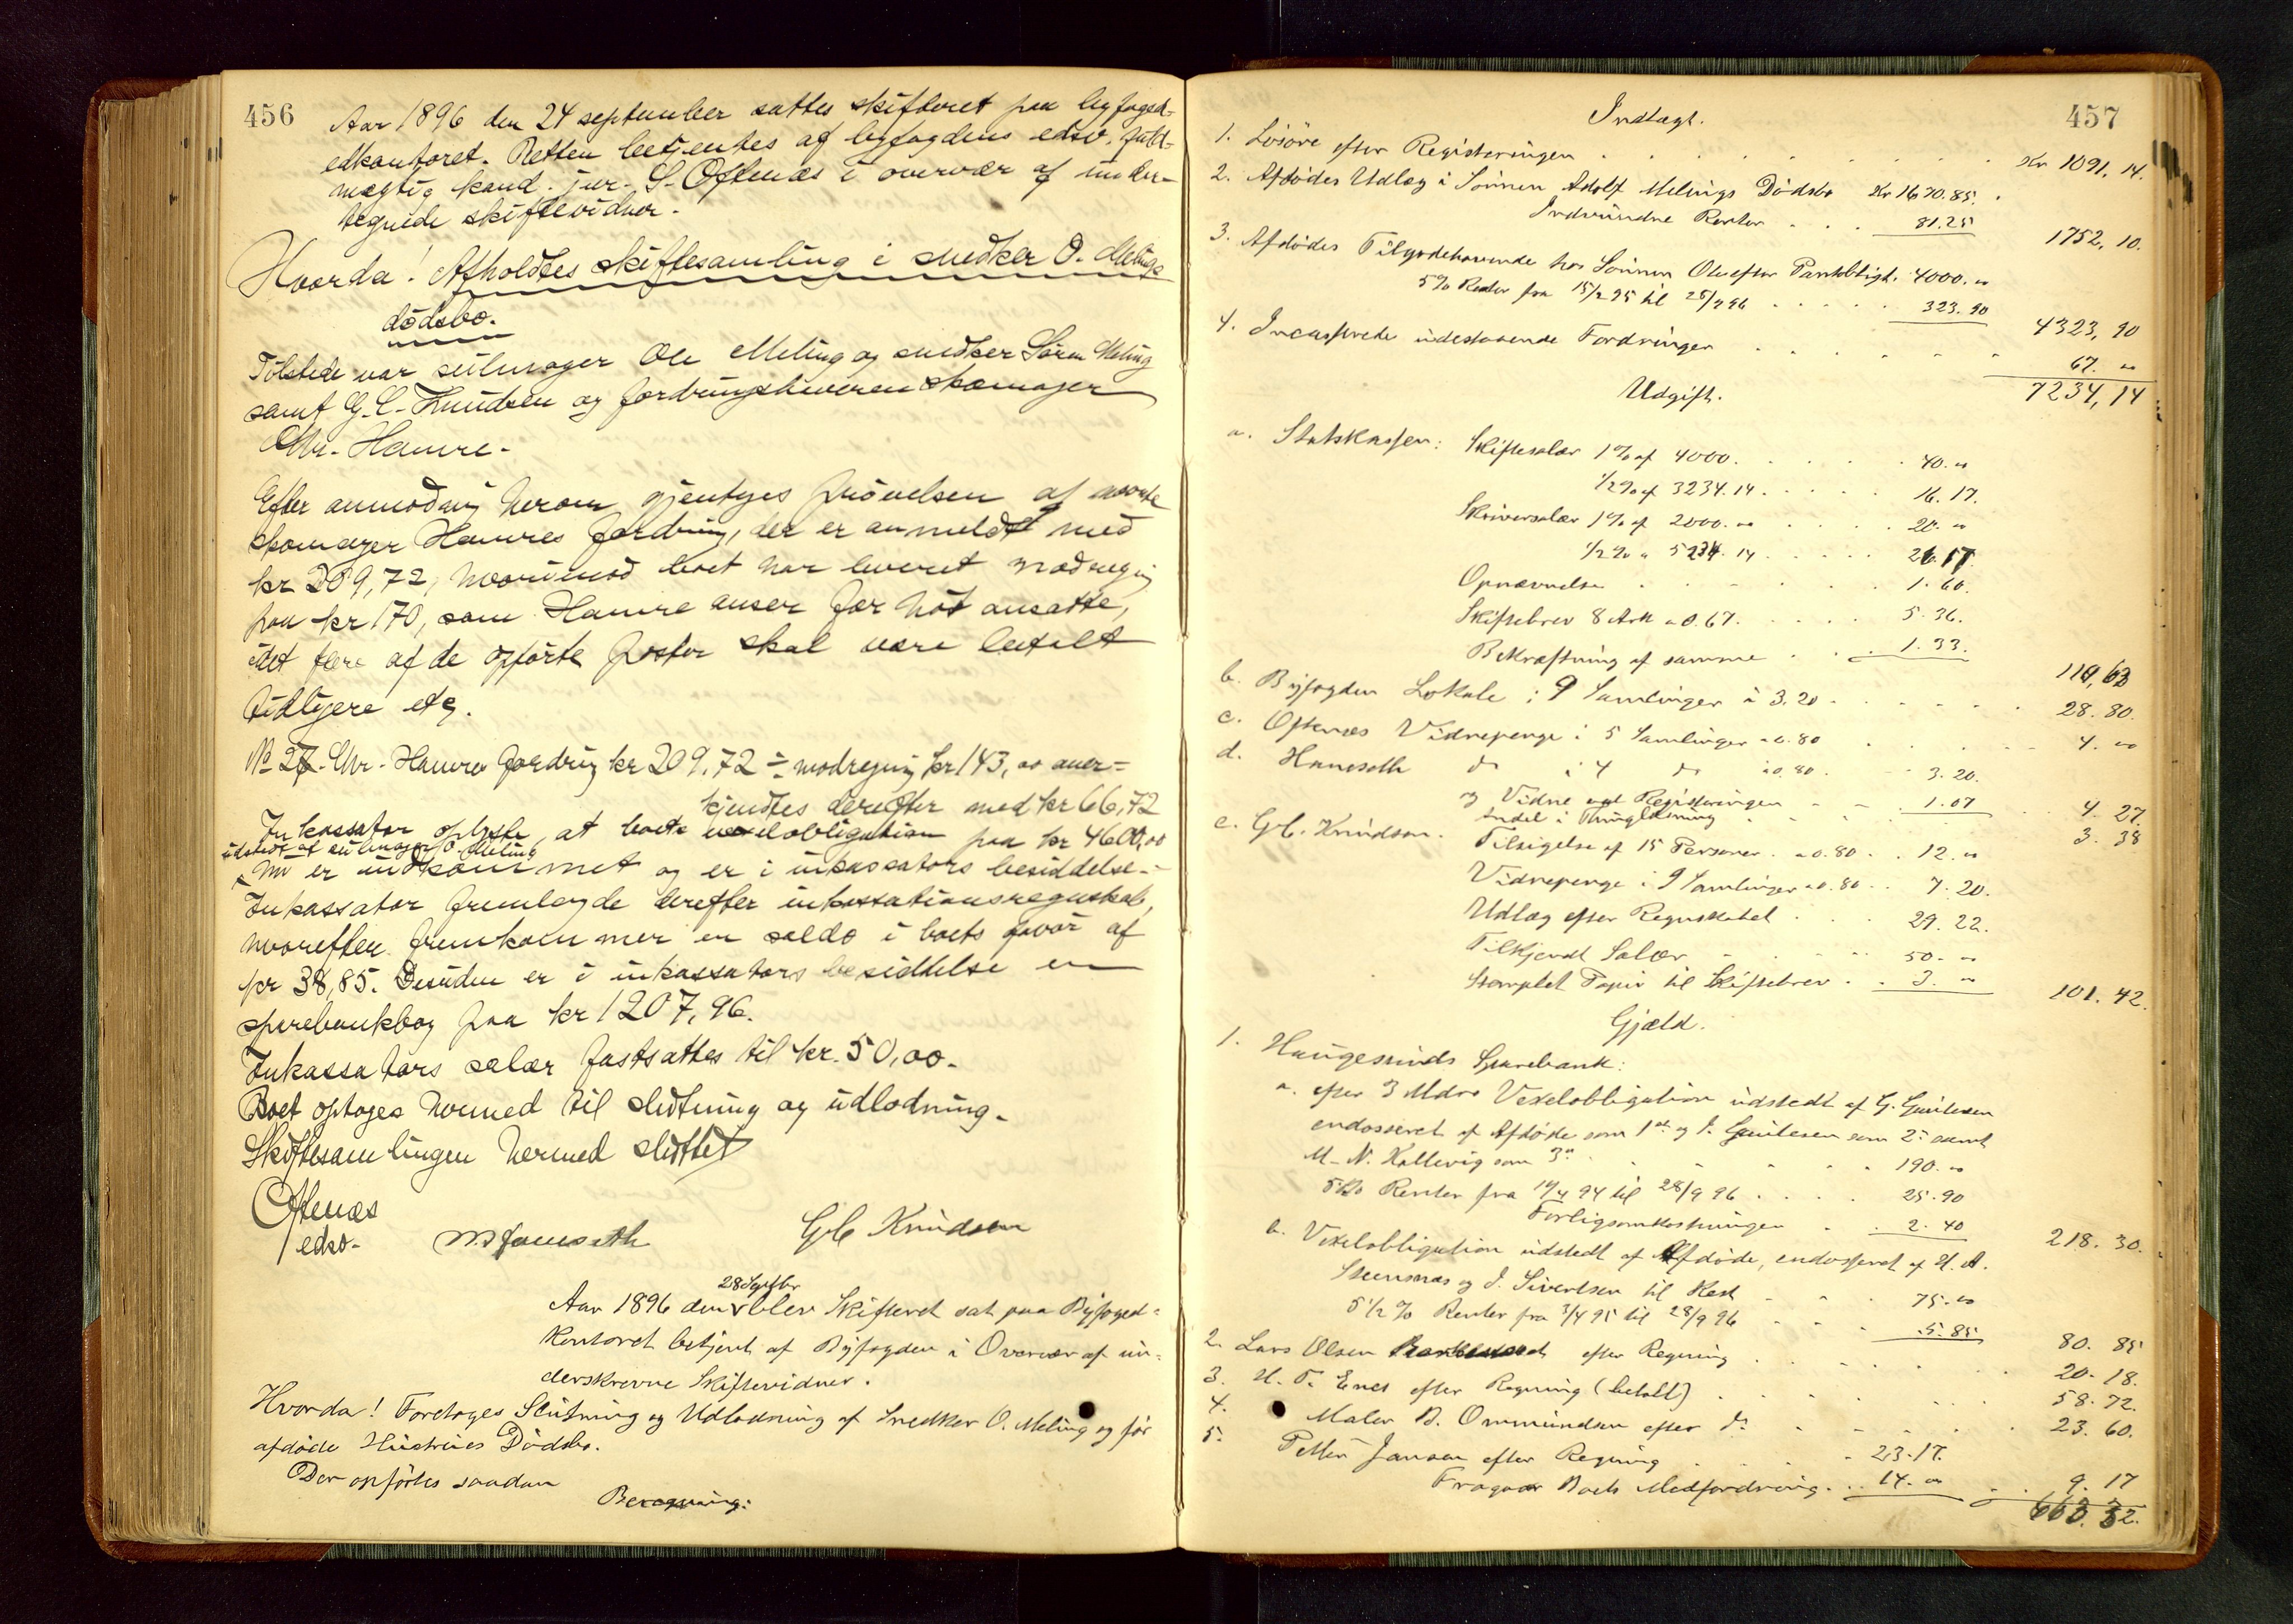 456
Aar 1896 den 24 september sattes skifteret paa byfoged-
edkontoret. Retten betjentes af byfogdens edsv. fuld-
mægtig kand. jur. S. Oftenæs i overvær af under-
tegnede skiftevidner.
Hvorda! Afholdtes skiftesamling i snedker O. Melings
dødsbo.
Tilstede var seilmager Ole Meling og snedker Søren Meling
samt G. C. Knudsen og fordringshaveren skomager
Chr. Hamre.
Efter anmodning herom gjentoges prøvelsen af
skomager Hamres fordring, der er anmeldt med
kr 209,72, hvorimod boet har leveret modregning
paa kr 170, som Hamre anser for høt ansatte,
idet flere af de opførte poster skal være betalt
tidligere etc.
No 27. Chr. Hamres fordring kr 209.72 ÷ modregning kr 143,00 aner-
kjendtes derefter med kr 66,72
Inkassator oplyste, at boets obligation paa kr 4600,00
udstedt af seilmager O. Meling
nu er indkommet og er i inkassators besiddelse.
Inkassator fremlagde derefter inkassationsregnskab,
hvorefter fremkommer en saldo i boets favør af
kr 38,85. Desuden er i inkassators besiddelse en
sparebankbog paa kr 1207,96.
Inkassators salær fastsattes til kr. 50,00.
Boet optoges hermed til slutning og udlodning.
Skiftesamlingen hermed sluttet
Oftenæs
edsv.
G. C. Knudsen
28 Septbr
Aar 1896 den blev Skifteret sat paa Byfoged-
Kontoret betjent af Byfogden i Overvær af un-
derskrevne Skiftevidner.
Hvorda! Foretoges Slutning og Udlodning af Snedker O. Meling og før
afdøde Hustrues Dødsbo.
Der opførtes saadan
Beregning:
457
Indtægt.
1. Løsøre efter Registeringen . . . Kr 1091. 14.
2. Afdødes Udlæg i Sønnen Adolf Melings Dødsbo Kr 1670.85.
Indvundne Renter . . . 81.25 1752, 10.
3. Afdødes Tilgodehavende hos Sønnen Ole efter Pantobligt. 4000. "
5% Renter fra 15/2 95 til 28/9 96 . . . 323. 90 4323, 90
4. Incasserede udestaaende Fordringer . . . 67. "
7234, 14
Udgift.
a. Statskassen: Skiftesalær 1% af 4000. . . . 40. "
1/2% af 3234.14 . . . 16. 17.
Skriversalær 1% af 2000. " . . . 20. "
1/2% " 5234. 14 . . . 26. 17.
Opnævnelse . . . 1. 60.
Skiftebrev 8 Ark a 0.67. . . . 5. 36.
Bekræftning af samme . . . 1. 33.
110,63
b. Byfogden Lokale i 9 Samlinger à 3.20 . . . 28. 80.
c. Oftenæs Vidnepenge i 5 Samlinger a 0.80 . . . 4. "
d. do i 4 do à 0.80 . . . 3. 20.
og Vidne ved Registeringen . . . 1. 07 4. 27.
Andel i Thinglæsning . . . 3. 38
e. G.C. Knudsen. Tilsigelse af 15 Personer a 0.80 . . 12. "
Vidnepenge i 9 Samlinger a 0.80 . . 7. 20.
Udlæg efter Regnskabet . . . 29. 22.
Tilkjendt Salær . . . 50. "
Stemplet Papir til Skiftebrev . . 3. " 101. 42.
Gjæld.
1. Haugesunds Sparebank:
a. efter 3 Mdrs Vexelobligation udstedt af G.
endosseret af Afdøde som 1ste og som 2den samt
M. N. Kallevig som 3die . . . 190. "
Renter fra 14/4 94 til 28/9 96 . . . 25. 90
Forligsomkostninger . . 2. 40 218. 30.
b. Vexelobligation udstedt af Afdøde, endosseret af H. A.
Steensnæs og J. Sivertsen til Rest . . . 75. "
5 1/2 % Renter fra 3/4 95 til 28/9 96 . . . 5. 85 80. 85
2. Lars Olsen efter Regning . . . 20. 18.
3. H. T. Enes efter Regning (betalt) . . . 58. 72.
4. Maler B. Ommundsen efter do . . . 23. 60.
5. Petter Jansen efter Regning . . . 23. 17.
Fragaar Boets Modfordring . . . 14. " 9. 17